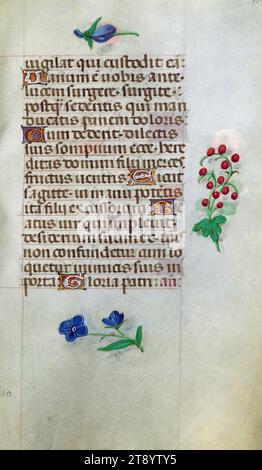 uigilat qui custodit eā:
Vanum ē uobis ante
lucem surgere: surgite
postq̄ sederitis qui man
ducatis panem doloris.
Cum dederit dilectis
suis somnum: ecce here
ditas domini filii: mer ces
fructus uentris. Sicut
sagitte in manu potētis
ita filii excussorum. Be
atus uir qui impleuit
desiderium suum ex ip̄is
non confundetur cum lo
quetur inimicis suis in
porta. Gloria patri: an̄.
alamy
Image ID: 2T8YTY5
www.alamy.com